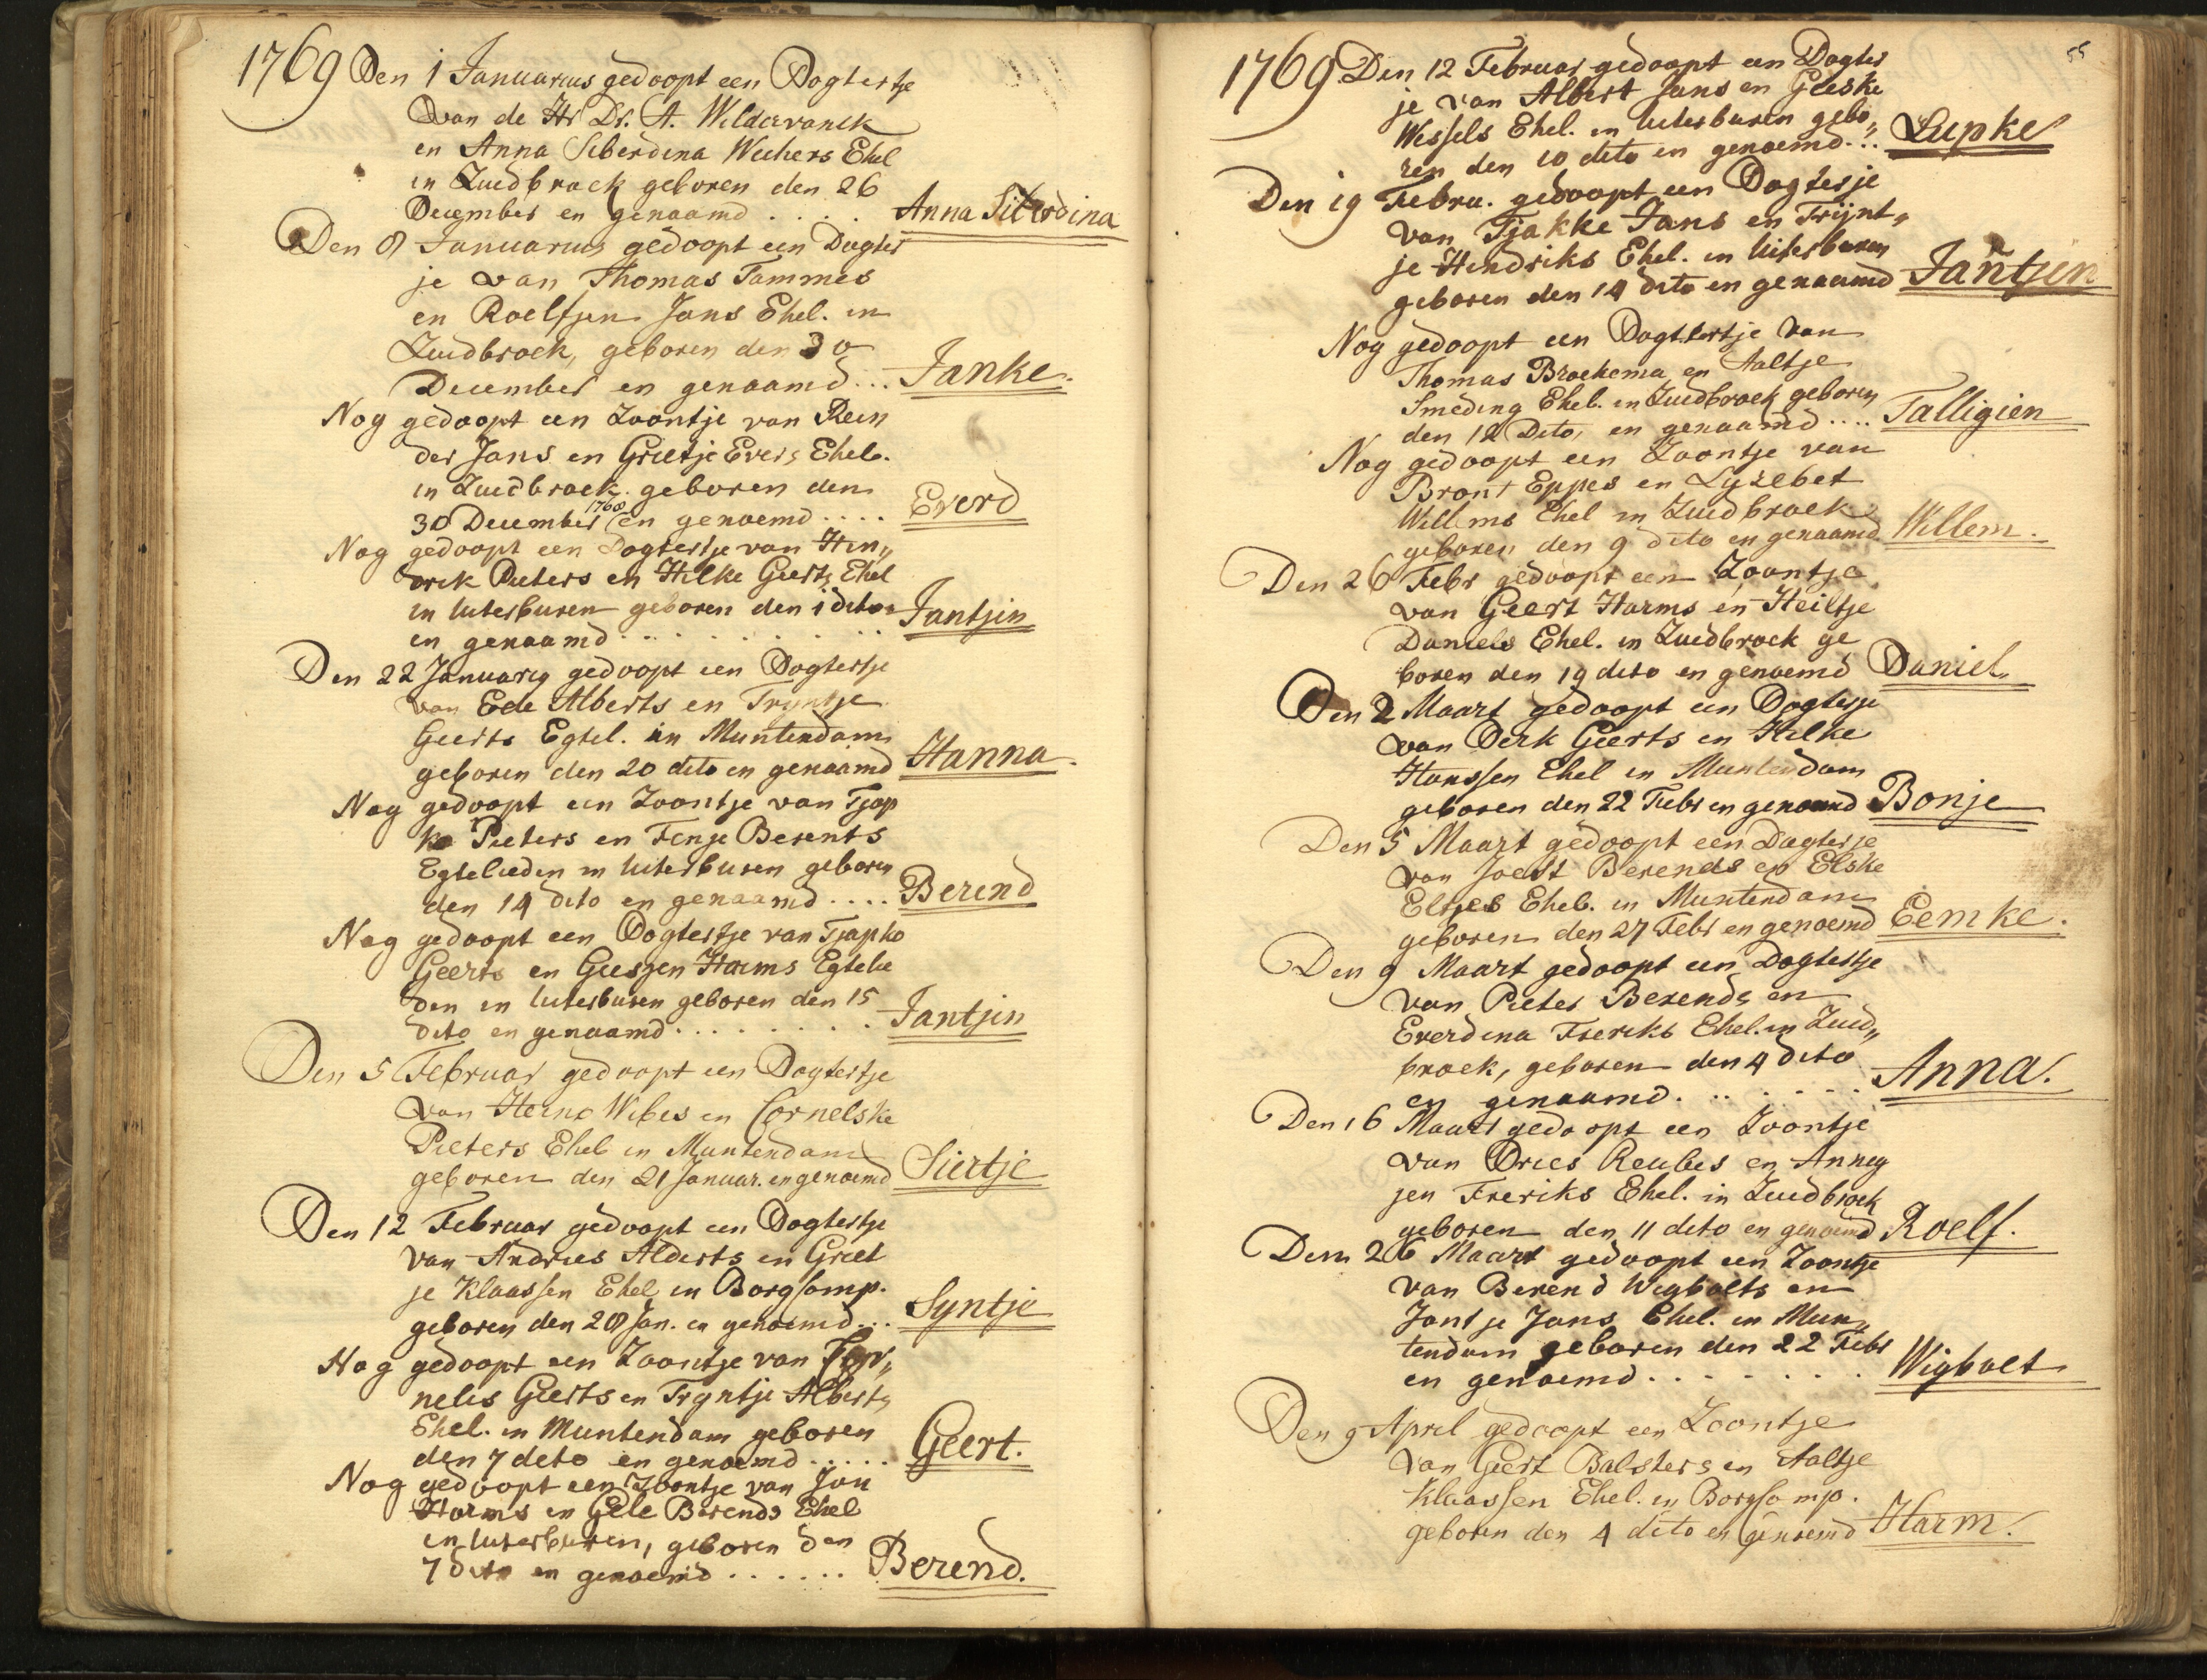 1769 Den 1 Januarius gedoopt een Dogtertje
van de Hr Dr. A. Wildervanck
en Anna Siberdina Wichers Ehel
in Zuidbroek geboren den 26
December en genaamd . . . . Anna Siberdina
Den 8 Januarius gedoopt een Dogter
je van Thomas Tammes
en Roelfjen Jans Ehel. in
Zuidbroek, geboren den 30
December en genaamd... Janke.
Nog gedoopt een Zoontje van Rein
der Jans en Grietje Evers Ehel.
in Zuidbroek geboren den
30 December 1768 en genoemd .... Everd
Nog gedoopt een Dogtertje van Hin„
drik Pieters en Hilke Geerts Ehel
in Uiterburen geboren den 1 dito
en genaamd . . . . . . . Jantjin
Den 22 Januarij gedoopt een Dogtertje
van Ede Alberts en Tryntje
Geerts Egtel. in Muntendam
geboren den 20 dito en genaamd Hanna.
Nog gedoopt een Zoontje van Tjap
ko Pieters en Fenje Berents
Egtelieden in Uiterburen geboren
den 14 dito en genaamd .... Berend
Nog gedoopt een Dogtertje van Tjapko
Geerts en Gieszen Harms Egtelie
den in Uiterburen geboren den 15
dito en genaamd . . . . . . . Jantjin
Den 5 Februar gedoopt een Dogtertje
van Heino Wibes en Cornelske
Pieters Ehel in Muntendam
geboren den 21 Januar. en genoemd Siertje
Den 12 Februar gedoopt een Dogtertje
van Andries Alderts en Griet
je Klaassen Ehel in Borgsomp.
geboren den 28 Jan. en genoemd... Syntje
Nog gedoopt een Zoontje van Cor„
nelis Geerts en Tryntje Alberts
Ehel. in Muntendam geboren
den 7 dito en genoemd ..... Geert.
Nog gedoopt een Zoontje van Jan
Harms en Gele Berends Ehel
in Uiterburen, geboren den
7 dito en genoemd ...... Berend.
55
1769 Den 12 Februar gedoopt een Dogter
je van Albert Jans en Geeske
Wessels Ehel. in Uiterburen gebo„
ren den 10 dito en genoemd... Lupke
Den 19 Febru. gedoopt een Dogterje
van Tjakke Jans en Trijnt„
je Hindriks Ehel. in Uiterburen
geboren den 14 dito en genaamd Jantjen
Nog gedoopt een Dogtertje van
Thomas Broekema en Aaltje
Smeding Ehel. in Zuidbroek geboren
den 12 Dito, en genaamd .... Talligien
Nog gedoopt een Zoontje van
Bront Eppes en Lyzebet
Willems Ehel in Zuidbroek
geboren den 9 dito en genaamd Willem.
Den 26 Febr gedoopt een Zoontje
van Geert Harms en Heiltje
Daniels Ehel. in Zuidbroek ge
boren den 19 dito en genoemd Daniel
Den 2 Maart gedoopt een Dogterje
van Derk Geerts en Hilke
Hanssen Ehel in Muntendam
geboren den 22 Febr en genaamd Bonje
Den 5 Maart gedoopt een Dogterje
van Joest Berends en Elske
Eltjes Ehel. in Muntendam
geboren den 27 Febr en genoemd Eemke.
Den 9 Maart gedoopt een Dogtertje
van Pieter Berends en
Everdina Freriks Ehel. in Zuid„
broek, geboren den 4 dito
en genaamd. . . . . . . Anna.
Den 16 Maart gedoopt een Zoontje
van Dries Reubes en Anneg
jen Freriks Ehel. in Zuidbroek
geboren den 11 dito en genoemd Roelf.
Den 26 Maart gedoopt een Zoontje
van Berend Wigbolts en
Jantje Jans Ehel. in Mun„
tendam geboren den 22 Febr
en genoemd . . . . . . . Wigbolt
Den 9 April gedoopt een Zoontje
van Geert Balsters en Aaltje
Klaassen Ehel. in Borgsomp.
geboren den 4 dito en genoemd Harm.